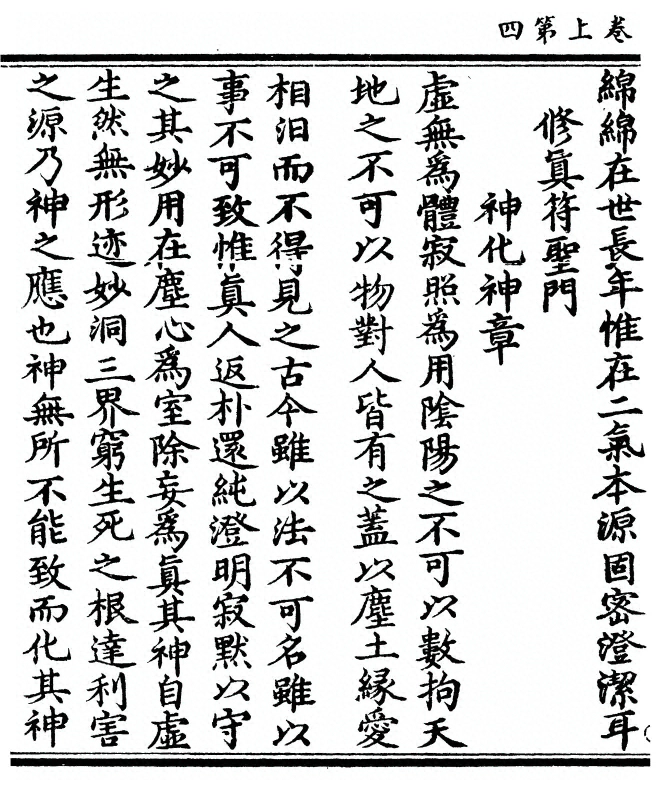 卷上第四
綿綿在世長年惟在二氣本源固密澄潔耳
修眞符聖門
神化神章
虛無爲體寂照爲用陰陽之不可以數拘天
地之不可以物對人皆有之蓋以塵土緣愛
相汨而不得見之古今雖以法不可名雖以
事不可致惟眞人返朴還純澄明寂默以守
之其妙用在塵心爲室除妄爲眞其神自虛
生然無形迹妙洞三界窮生死之根達利害
之源乃神之應也神無所不能致而化其神